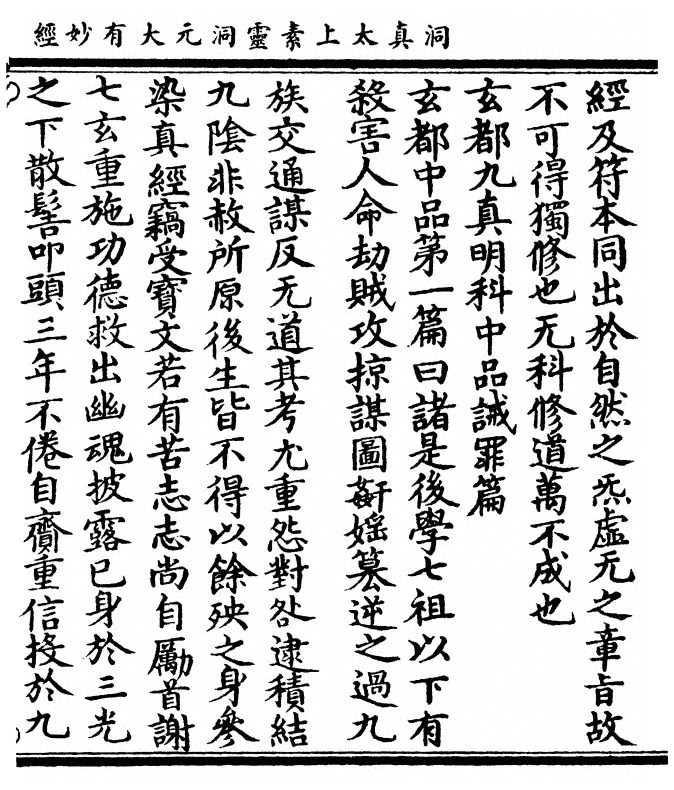 洞真太上素靈洞元大有妙經
經及符本同出於自然之炁虛无之章旨故
不可得獨修也无科修道萬不成也
玄都九真明科中品誡罪篇
玄都中品第一篇曰諸是後學七祖以下有
殺害人命劫賊攻掠謀圖姧婬篡逆之過九
族交通謀反无道其考尤重怨對咎逮積結
九陰非赦所原後生皆不得以餘殃之身參
染真經竊受寶文若有苦志志尚自勵首謝
七玄重施功德救出幽魂披露已身於三光
之下散髻叩頭三年不倦自齎重信投於九